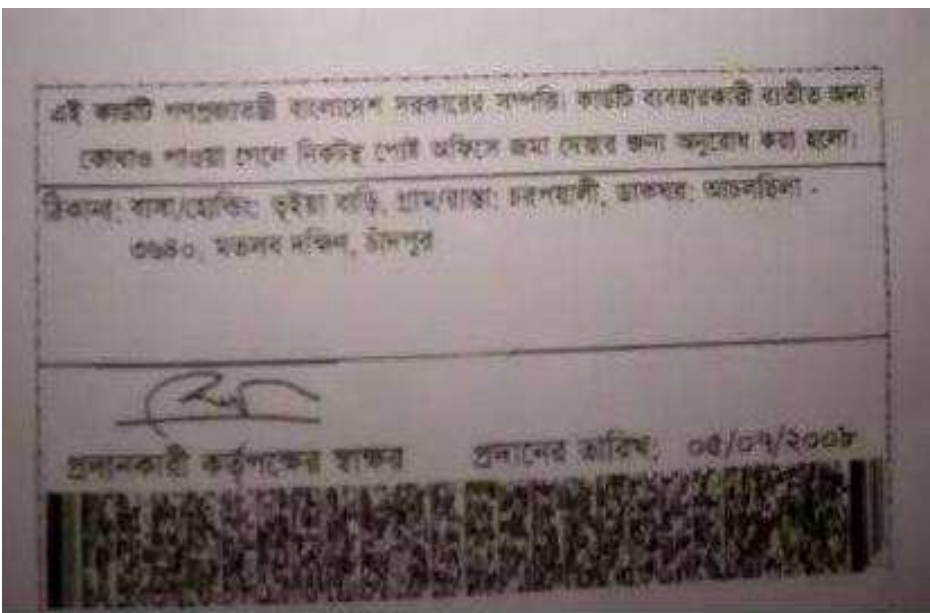 এই কার্ডটি গণপ্রজাতন্ত্রী বাংলাদেশ সরকারের সম্পত্তি। কার্ডটি ব্যবহারকারী ব্যতীত অন্য
কোথাও পাওয়া গেলে নিকটস্থ পোষ্ট অফিসে জমা দেবার জন্য অনুরোধ করা হলো।
ঠিকানা: বাসা/হোল্ডিং: ভূইয়া বাড়ি, গ্রাম/রাস্তা: ডাকঘর: -
৩৬৪০, মতলব দক্ষিণ, চাঁদপুর
প্রদানকারী কর্তৃপক্ষের স্বাক্ষর প্রদানের তারিখ: ০৫/০৭/২০০৮